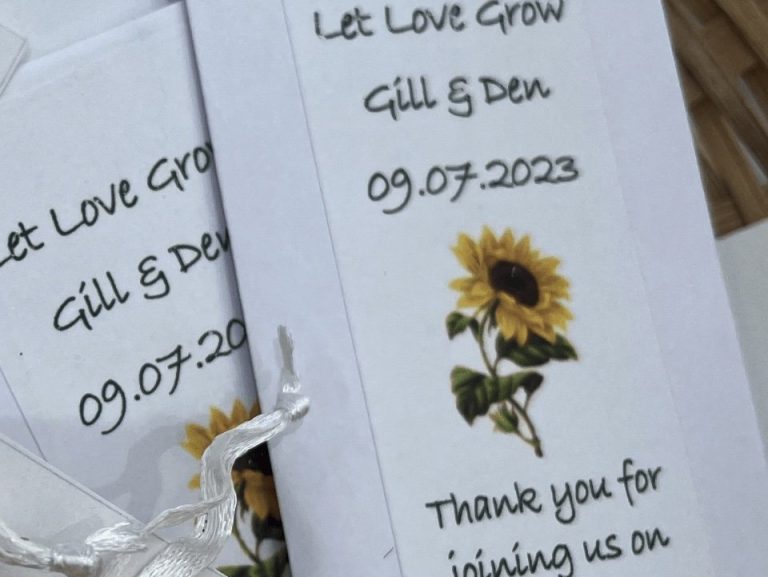 Let Love Grow
Gill & Den
09.07.2023
Thank you for
joining us on
Let Love Gro
Gill & Den
09.07.20